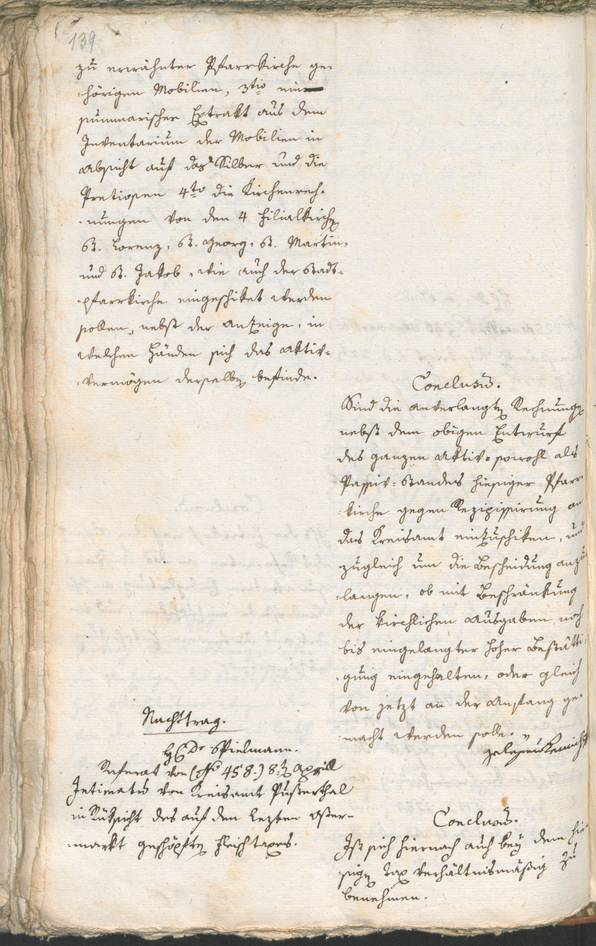 139.
zu erwähnter Pfarrkirche ge-
hörigen Mobilien, 3tio ein
summarischer Extrakt aus dem
Inventarium der Mobilien in
Absicht auf das Silber und die
Pretiosen 4to die Kirchenrech-
nungen von den 4 Filialkirchen
St. Lorenz, St. Georg, St. Martin,
und St. Jakob, wie auch der Stadt-
pfarrkirche eingeschiket werden
sollen, nebst der Anzeige, in
welchen Händen sich das Aktiv-
vermögen derselben befinde.
Conclusum.
Sind die anverlangten Rechnungen
nebst dem obigen Entwurf
des ganzen Aktiv- sowohl als
Passiv-Standes hiesiger Pfarr
kirche gegen Rezipissirung an
das Kreisamt einzuschiken, und
zugleich um die Bescheidung anzu
langen, ob mit Beschränkung
der kirchlichen Ausgaben noch
bis eingelangter hoher Bestätti
gung eingehalten, oder gleich
von jetzt an der Anfang ge
macht werden solle."
gelesen
Nachtrag.
H Dr Spielmann.
Referat von (No 458.) 8ten April
Intimatum von Kreisamt Pusterthal
in Rüksicht des auf den lezten Oster-
markt geschöpften Fleischtaxes.
Conclusum.
Ist sich hiernach auch bey dem hie
sigen Tax verhältnismäßig zu
benehmen.